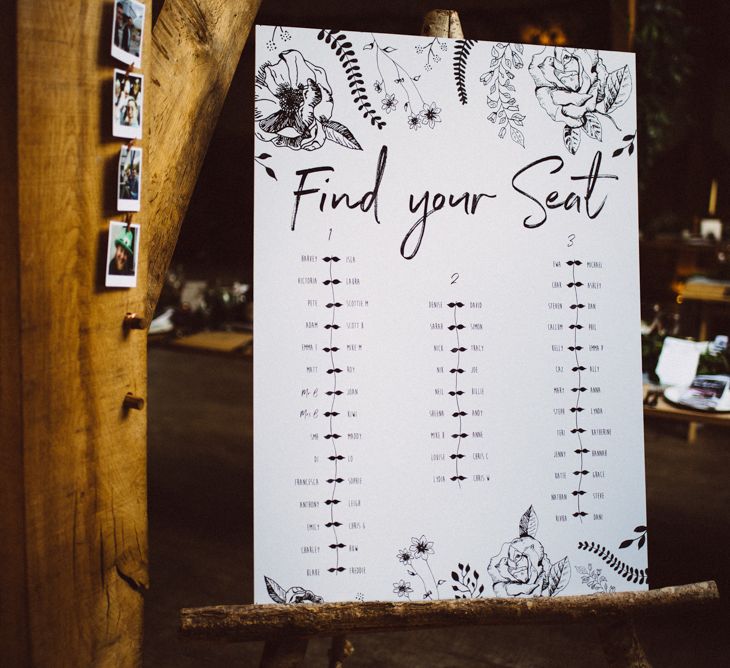 Find your Seat
1
HARVEY ISLA
VICTORIA LAURA
PETE SCOTTIE M
ADAM SCOTT B
EMMA T MIKE M
MATT ROY
Mr B JOAN
Mrs B KIWI
SME MADDY
DI LO
FRANCESCA SOPHIE
ANTHONY LEIGH
EMILY CHRIS G
CHARLEY HOW
BLAKE FREDDIE
2
DENISE DAVID
SARAH SIMON
NICK TRACY
NIK JOE
NEIL BILLIE
SHEENA ANDY
MIKE B ANNE
LOUISE CHRIS C
LYDIA CHRIS W
3
EWA MICHAEL
CHAR ASHLEY
STEVEN DAN
CALLUM PHIL
KELLY EMMA P
CAZ ALLY
MARY ANNA
STEPH LYNDA
TERI KATHERINE
JENNY HANNAH
KATIE GRACE
NATHAN STEVE
RIVKA DANI